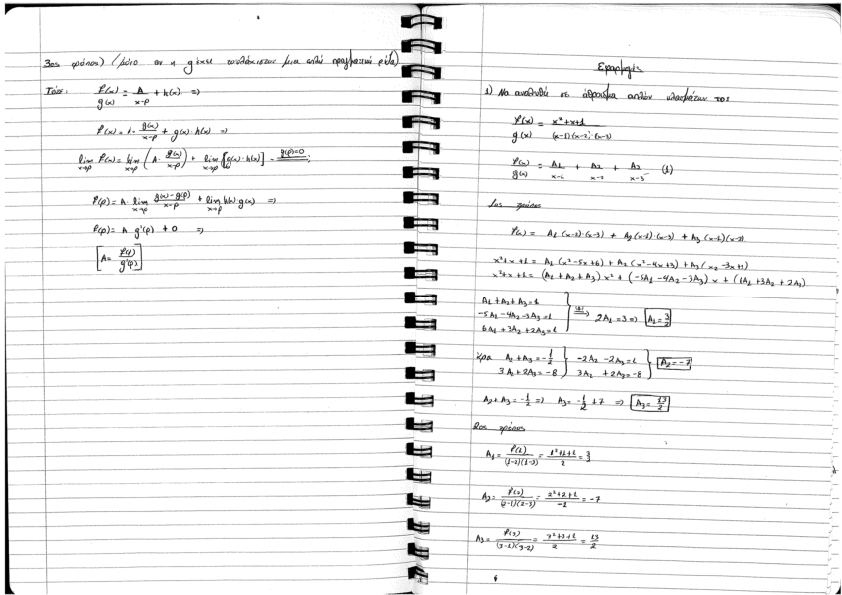 3ος τρόπος) (μόνο αν η g έχει τουλάχιστον μια απλή πραγματική ρίζα)
Τότε: f(x)/g(x) = A/(x-ρ) + h(x) =>
f(x) = A· g(x)/(x-ρ) + g(x)·h(x) =>
lim x→ρ f(x) = lim x→ρ (A· g(x)/(x-ρ)) + lim x→ρ [g(x)·h(x)] g(ρ)=0
f(ρ) = A· lim x→ρ (g(x)-g(ρ))/(x-ρ) + lim x→ρ h(x)·g(x) =>
f(ρ) = A g'(ρ) + 0 =>
[A = f(ρ)/g'(ρ)]
Εφαρμογές
1) Να αναλυθεί σε άθροισμα απλών κλασμάτων το:
f(x)/g(x) = (x²+x+1)/((x-1)(x-2)·(x-3))
f(x)/g(x) = A1/(x-1) + A2/(x-2) + A3/(x-3) (1)
1ος τρόπος
f(x) = A1 (x-2)·(x-3) + A2 (x-1)·(x-3) + A3 (x-1)(x-2)
x²+x+1 = A1 (x²-5x+6) + A2 (x²-4x+3) + A3 (x2-3x+2)
x²+x+1 = (A1+A2+A3) x² + (-5A1-4A2-3A3) x + (6A1+3A2+2A3)
A1+A2+A3=1
-5A1-4A2-3A3=1 => 2A1=3 => A1=3/2
6A1+3A2+2A3=1
Άρα A2+A3=-1/2 -2A2-2A3=1 A2=-7
3A2+2A3=-8 3A2+2A3=-8
A2+A3=-1/2 => A3=-1/2+7 => A3=13/2
2ος τρόπος
A1 = f(1)/((1-2)(1-3)) = (1²+1+1)/2 = 3/2
A2 = f(2)/((2-1)(2-3)) = (2²+2+1)/-1 = -7
A3 = f(3)/((3-1)(3-2)) = (3²+3+1)/2 = 13/2